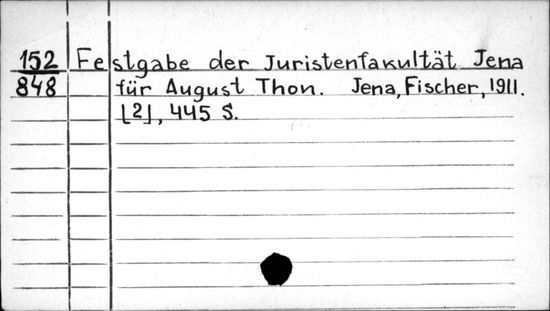 152 Festgabe der Juristenfakultät Jena
848 für August Thon. Jena, Fischer, 1911.
[2], 445 S.